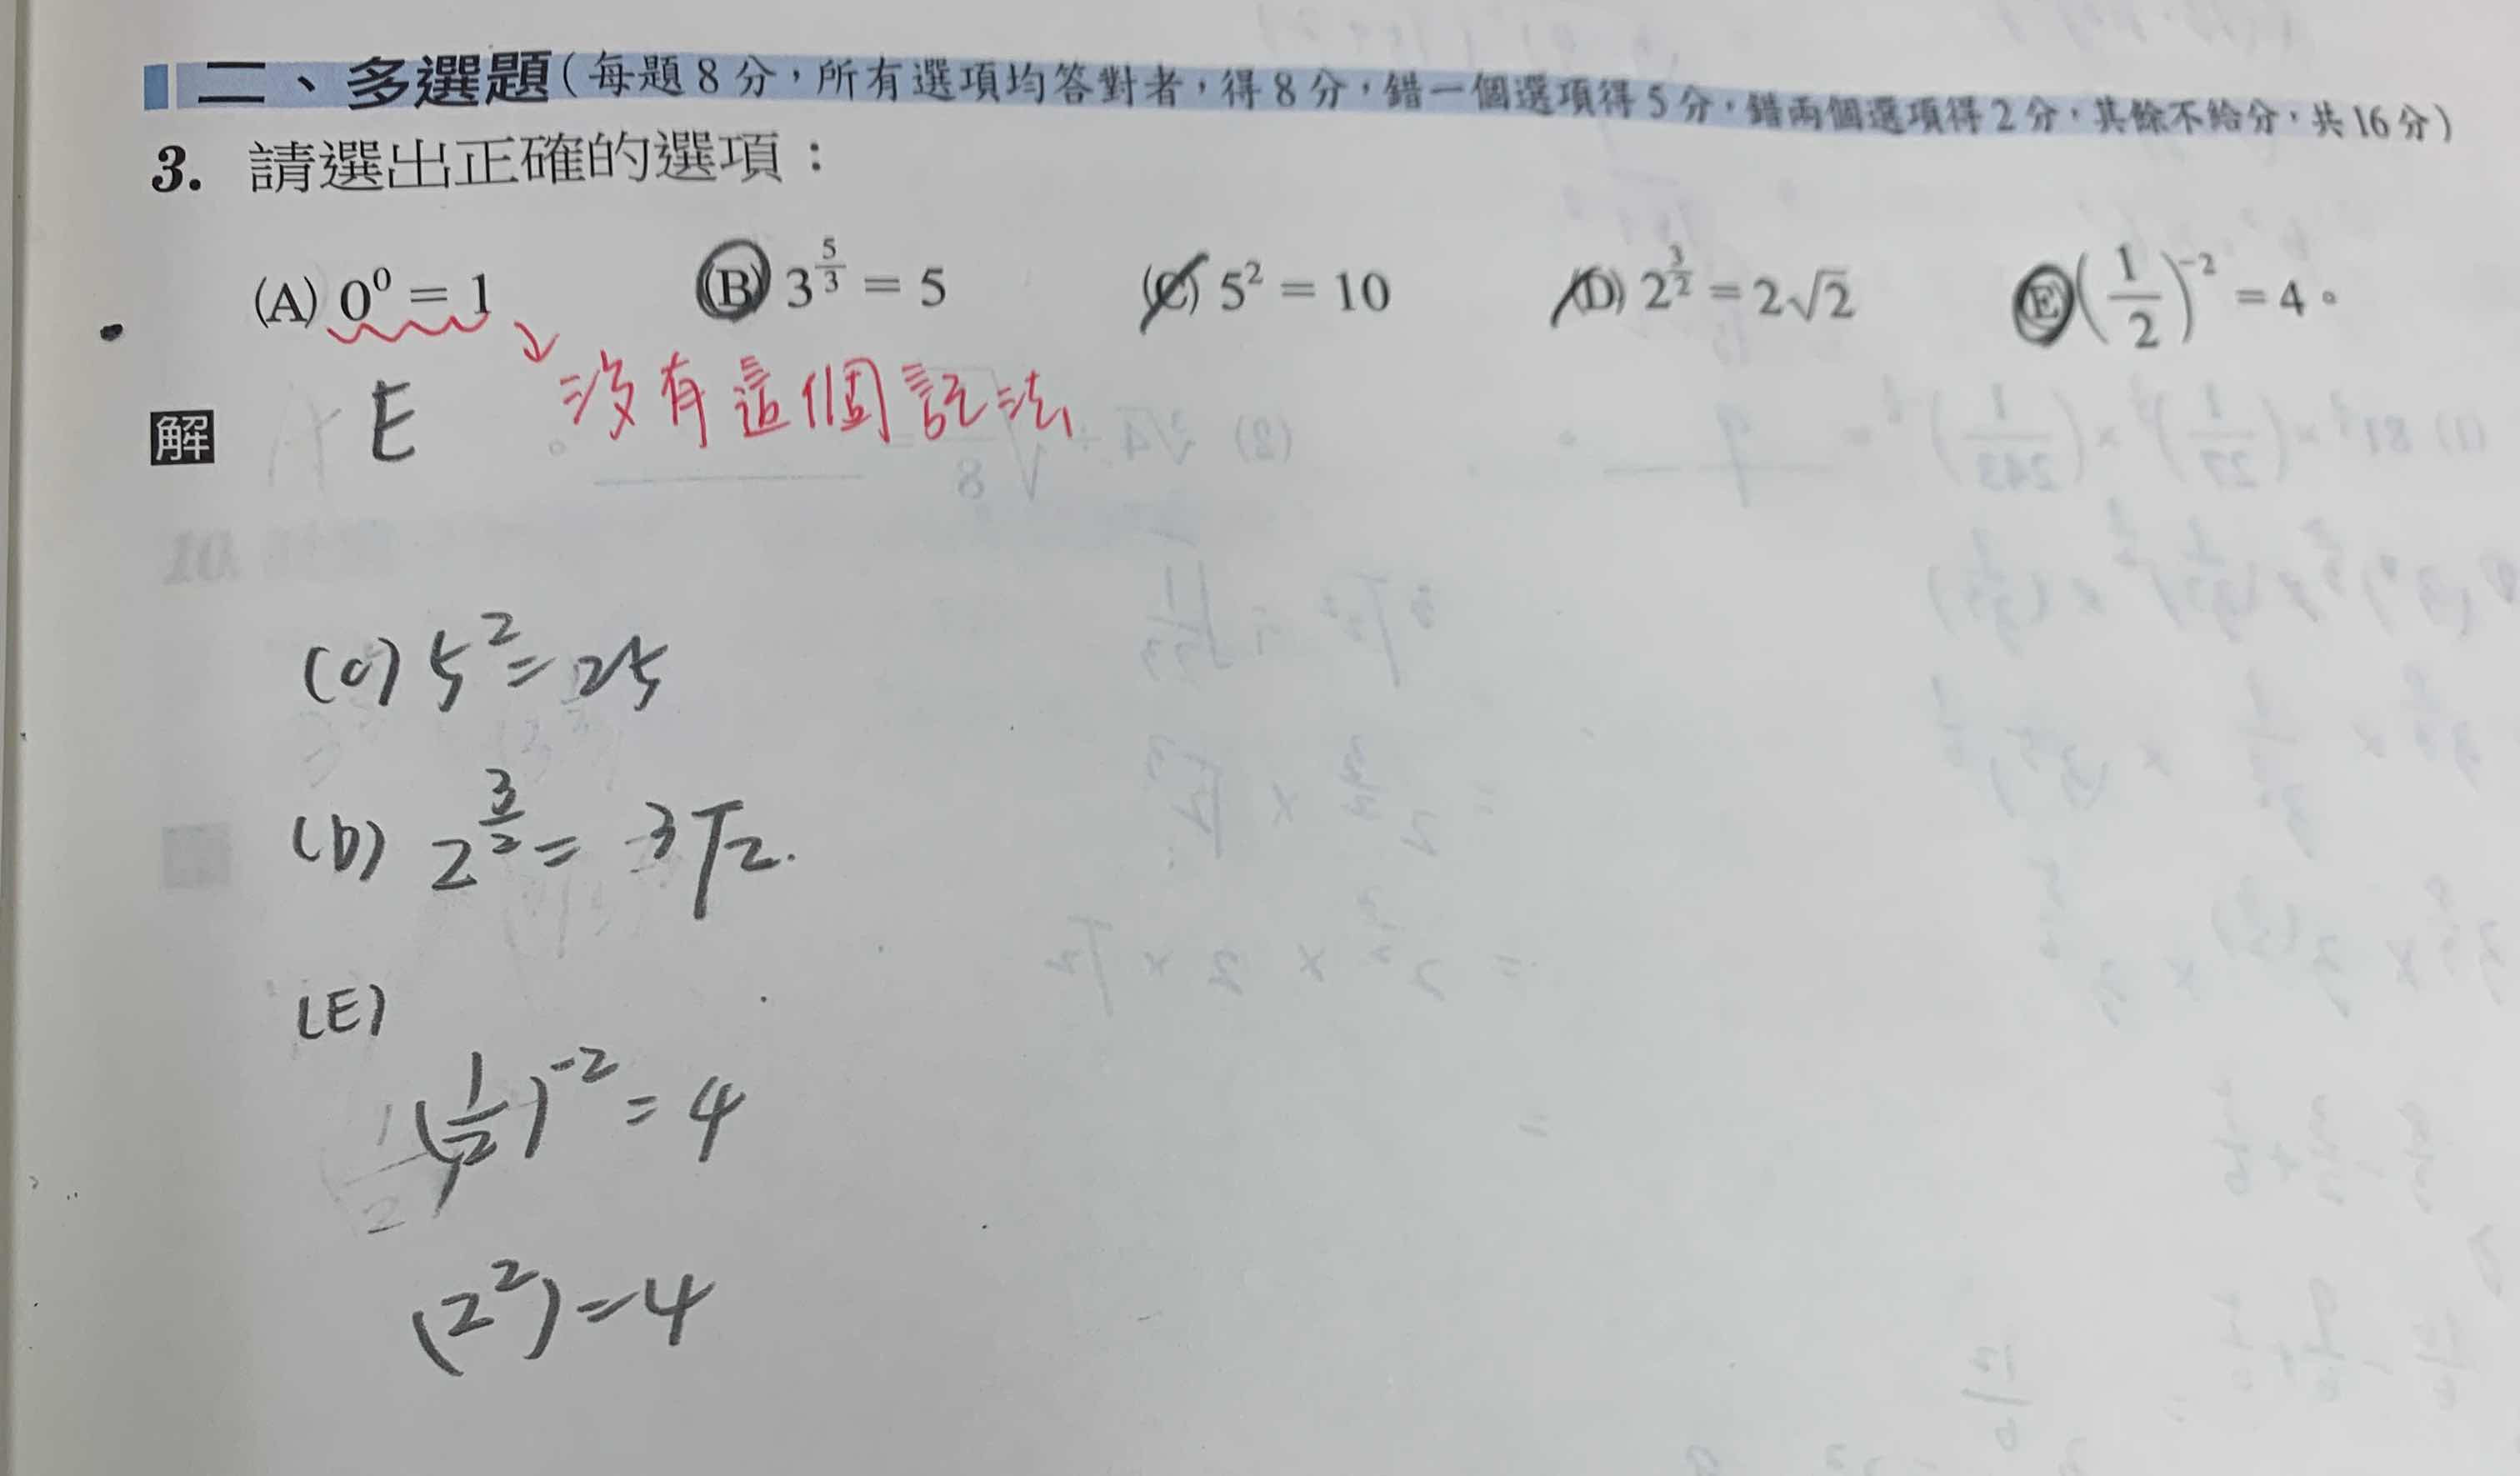 二、多選題(每題8分，所有選項均答對者，得8分，錯一個選項得5分，錯兩個選項得2分，其餘不給分，共16分)
3. 請選出正確的選項：
(A) 0⁰ = 1 (B) 3^(5/3) = 5 (C) 5² = 10 (D) 2^(3/2) = 2√2 (E) (1/2)^-2 = 4。
沒有這個記法
解 E
(C) 5² = 25
(D) 2^(3/2) = 3√2.
(E)
(1/2)^-2 = 4
(2²) = 4